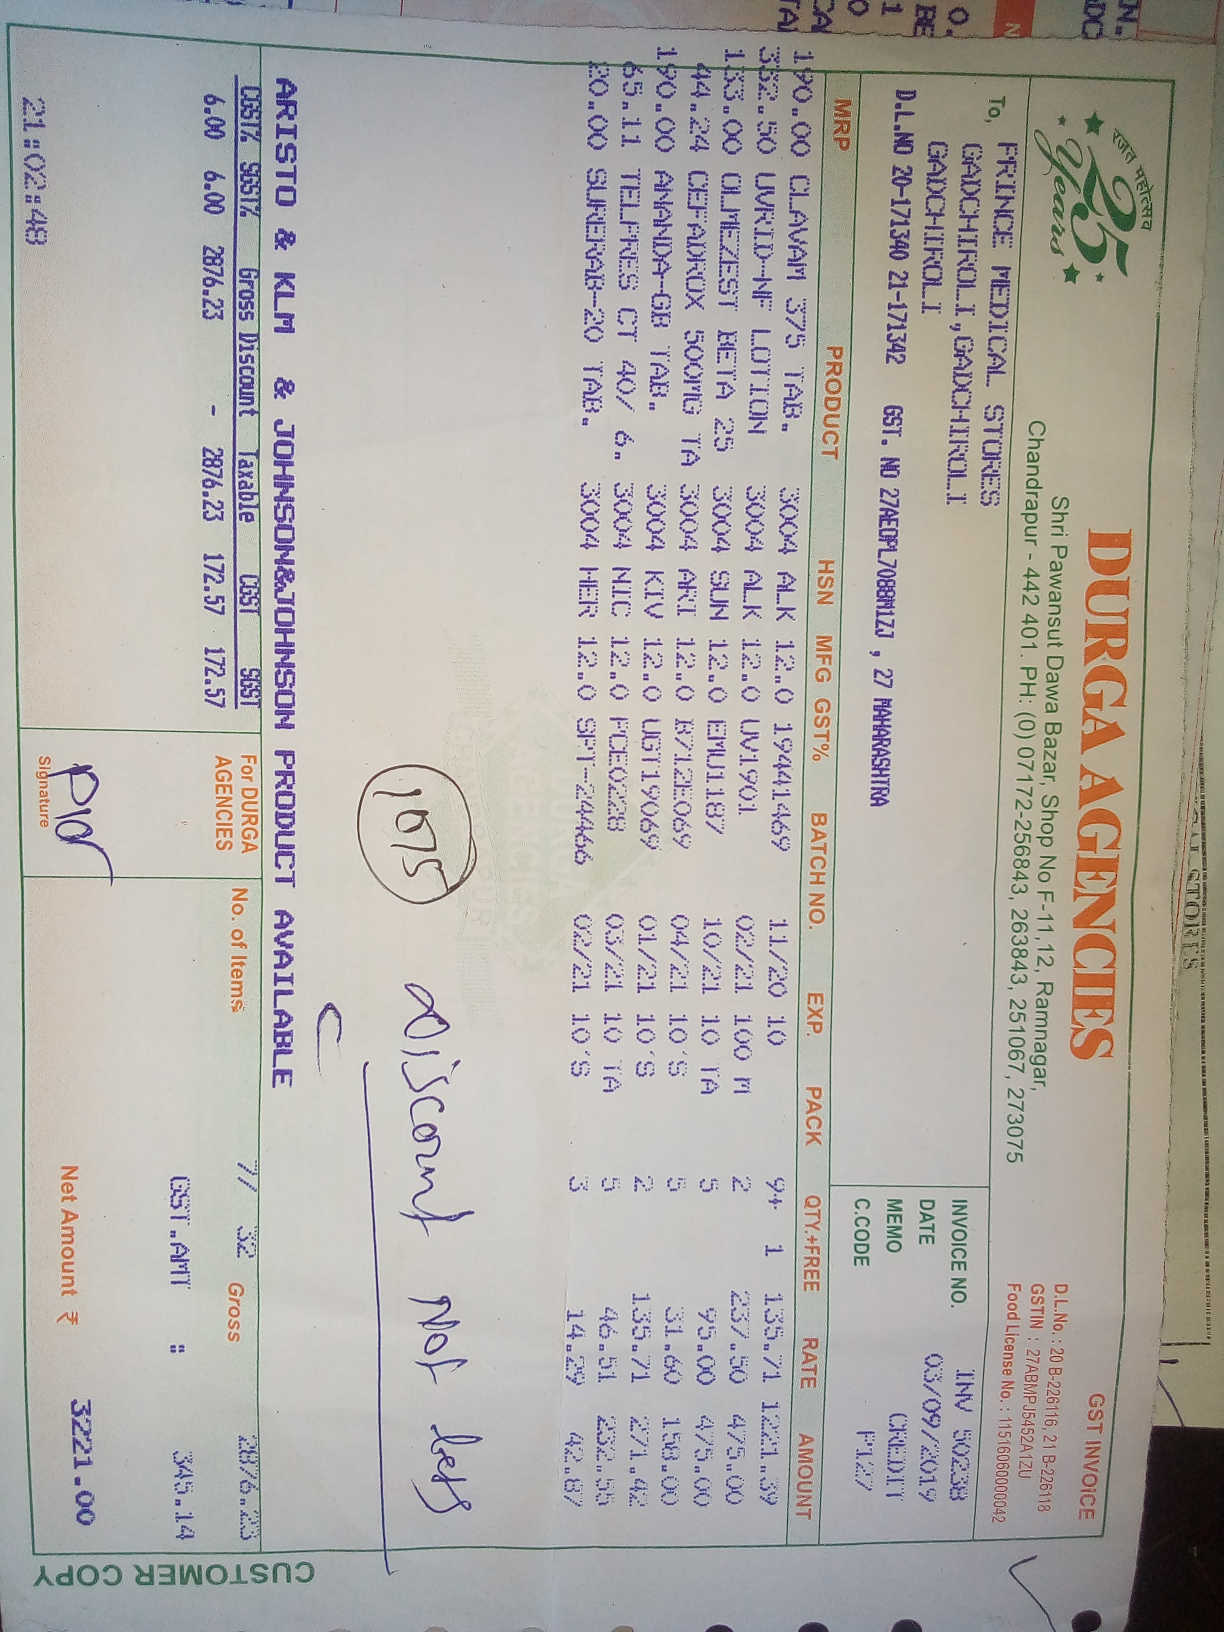 रजत महोत्सव
25
Years
DURGA AGENCIES
Shri Pawansut Dawa Bazar, Shop No F-11,12, Ramnagar,
Chandrapur - 442 401. PH: (0) 07172-256843, 263843, 251067, 273075
GST INVOICE
D.L.No. : 20 B-226116, 21 B-226118
GSTIN : 27ABMPJ5452A1ZU
Food License No. : 11516060000042
To, PRINCE MEDICAL STORES
GADCHIROLI,GADCHIROLI
GADCHIROLI
D.L.NO 20-171340 21-171342 GST. NO 27AEOPL7088M1ZJ , 27 MAHARASHTRA
INVOICE NO. INV 50238
DATE 03/09/2019
MEMO CREDIT
C.CODE P127
MRP PRODUCT HSN MFG GST% BATCH NO. EXP. PACK QTY.+FREE RATE AMOUNT
190.00 CLAVAM 375 TAB. 3004 ALK 12.0 19441469 11/20 10 9+ 1 135.71 1221.39
332.50 UVRID-NF LOTION 3004 ALK 12.0 UV1901 02/21 100 M 2 237.50 475.00
133.00 OLMEZEST BETA 25 3004 SUN 12.0 EMU1187 10/21 10 TA 5 95.00 475.00
44.24 CEFADROX 500MG TA 3004 ARI 12.0 B712E069 04/21 10'S 5 31.60 158.00
190.00 ANANDA-GB TAB. 3004 KIV 12.0 UGT19069 01/21 10'S 2 135.71 271.42
65.11 TELPRES CT 40/ 6. 3004 NIC 12.0 PCE0228 03/21 10 TA 5 46.51 232.55
20.00 SURERAB-20 TAB. 3004 HER 12.0 SPT-24466 02/21 10'S 3 14.29 42.87
1075
Discount Not less
ARISTO & KLM & JOHNSON&JOHNSON PRODUCT AVAILABLE
CGST% SGST% Gross Discount Taxable CGST SGST
6.00 6.00 2876.23 - 2876.23 172.57 172.57
For DURGA AGENCIES
Signature
No. of Items 7/ 32 Gross 2876.23
GST.AMT : 345.14
Net Amount ₹ 3221.00
21:02:48
CUSTOMER COPY